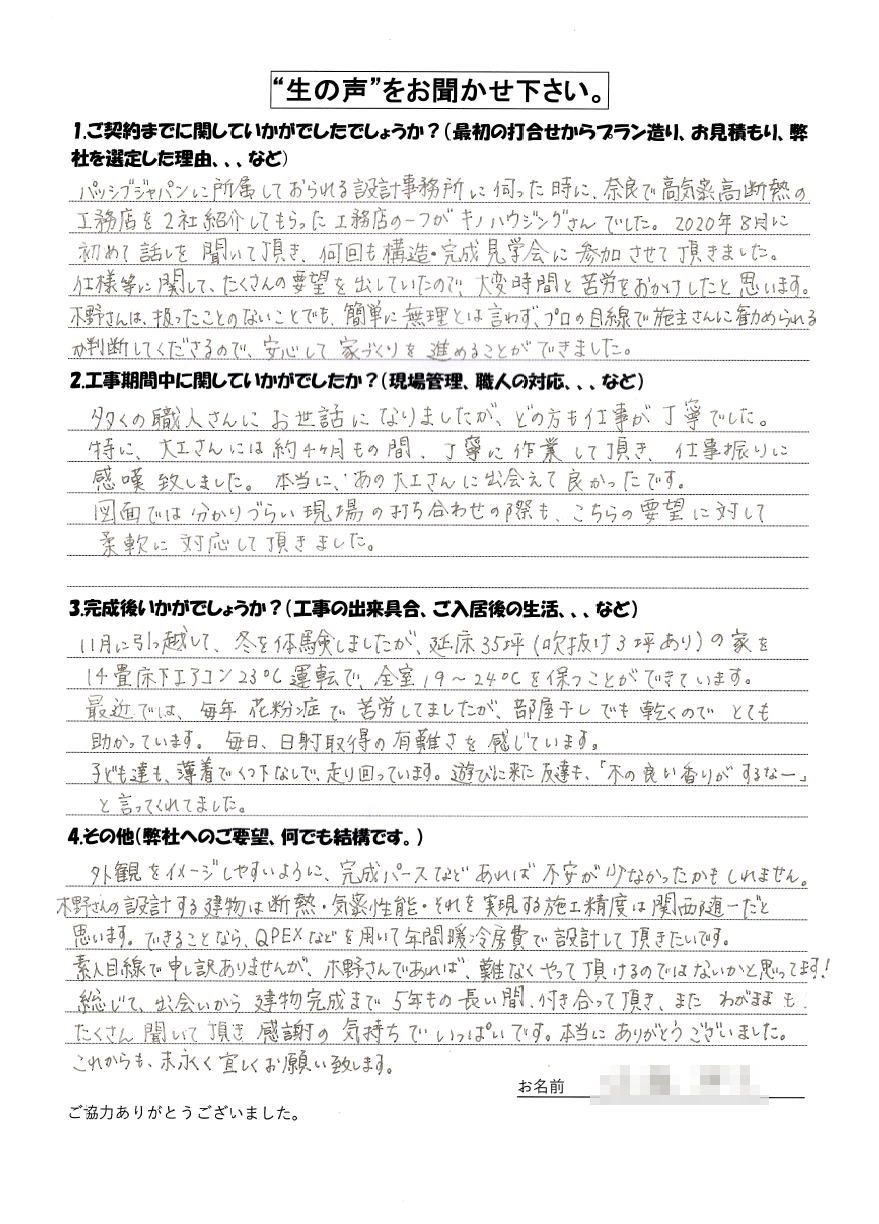 “生の声”をお聞かせ下さい。
1.ご契約までに関していかがでしたでしょうか？（最初の打合せからプラン造り、お見積もり、弊
社を選定した理由、、、など）
パッシブジャパンに所属しておられる設計事務所に伺った時に、奈良で高気密高断熱の
工務店を2社紹介してもらった工務店の一つがキノハウジングさんでした。2020年8月に
初めて話しを聞いて頂き、何回も構造・完成見学会に参加させて頂きました。
仕様等に関して、たくさんの要望を出していたので、大変時間と苦労をおかけしたと思います。
木野さんは、扱ったことのないことでも、簡単に無理とは言わず、プロの目線で施主さんに勧められる
か判断してくださるので、安心して家づくりを進めることができました。
2.工事期間中に関していかがでしたか？（現場管理、職人の対応、、、など）
多くの職人さんにお世話になりましたが、どの方も仕事が丁寧でした。
特に、大工さんには約4ヶ月もの間、丁寧に作業して頂き、仕事振りに
感嘆致しました。本当に、あの大工さんに出会えて良かったです。
図面では分かりづらい現場の打ち合わせの際も、こちらの要望に対して
柔軟に対応して頂きました。
3.完成後いかがでしょうか？（工事の出来具合、ご入居後の生活、、、など）
11月に引っ越して、冬を体験しましたが、延床35坪（吹抜け3坪あり）の家を
14畳床下エアコン23℃運転で、全室19～24℃を保つことができています。
最近では、毎年花粉症で苦労してましたが、部屋干しでも乾くのでとても
助かっています。毎日、日射取得の有難さを感じています。
子ども達も、薄着でくつ下なしで、走り回っています。遊びに来た友達も、「木の良い香りがするなー」
と言ってくれてました。
4.その他（弊社へのご要望、何でも結構です。）
外観をイメージしやすいように、完成パースなどあれば不安が少なかったかもしれません。
木野さんの設計する建物は断熱・気密性能・それを実現する施工精度は関西随一だと
思います。できることなら、QPEXなどを用いて年間暖冷房費で設計して頂きたいです。
素人目線で申し訳ありませんが、木野さんであれば、難なくやって頂けるのではないかと思ってます！
総じて、出会いから建物完成まで5年もの長い間、付き合って頂き、またわがままも
たくさん聞いて頂き感謝の気持ちでいっぱいです。本当にありがとうございました。
これからも、末永く宜しくお願い致します。
お名前
ご協力ありがとうございました。